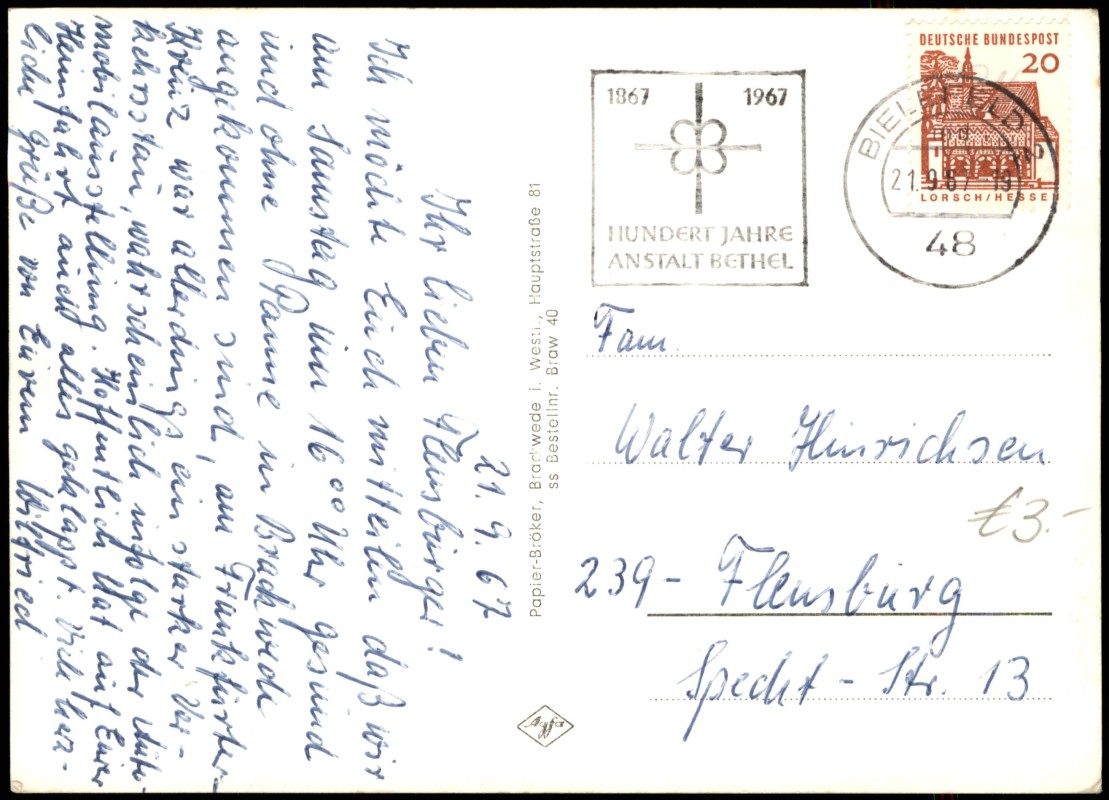 21. 9. 67
Ihr lieben Flensburger!
Ich möchte Euch mitteilen daß wir
am Samstag um 16 00 Uhr gesund
und ohne Panne in Brackwede
angekommen sind, am Frankfurter-
Kreuz war allerdings ein starker Ver-
kehrsstau, wahrscheinlich infolge der Auto-
mobilausstellung. Hoffentlich hat auf Eurer
Heimfahrt auch alles geklappt. Viele herz-
liche Grüße von Eurem Wilfried
Papier-Bröker, Brackwede i. Westf., Hauptstraße 81
ss Bestellnr. Braw 40
Agfa
1867 1967
HUNDERT JAHRE
ANSTALT BETHEL
BIELEFELD
21.9.67-19
48
DEUTSCHE BUNDESPOST
20
LORSCH/HESSEN
Fam.
Walter Hinrichsen
€3.-
239- Flensburg
Specht-Str. 13